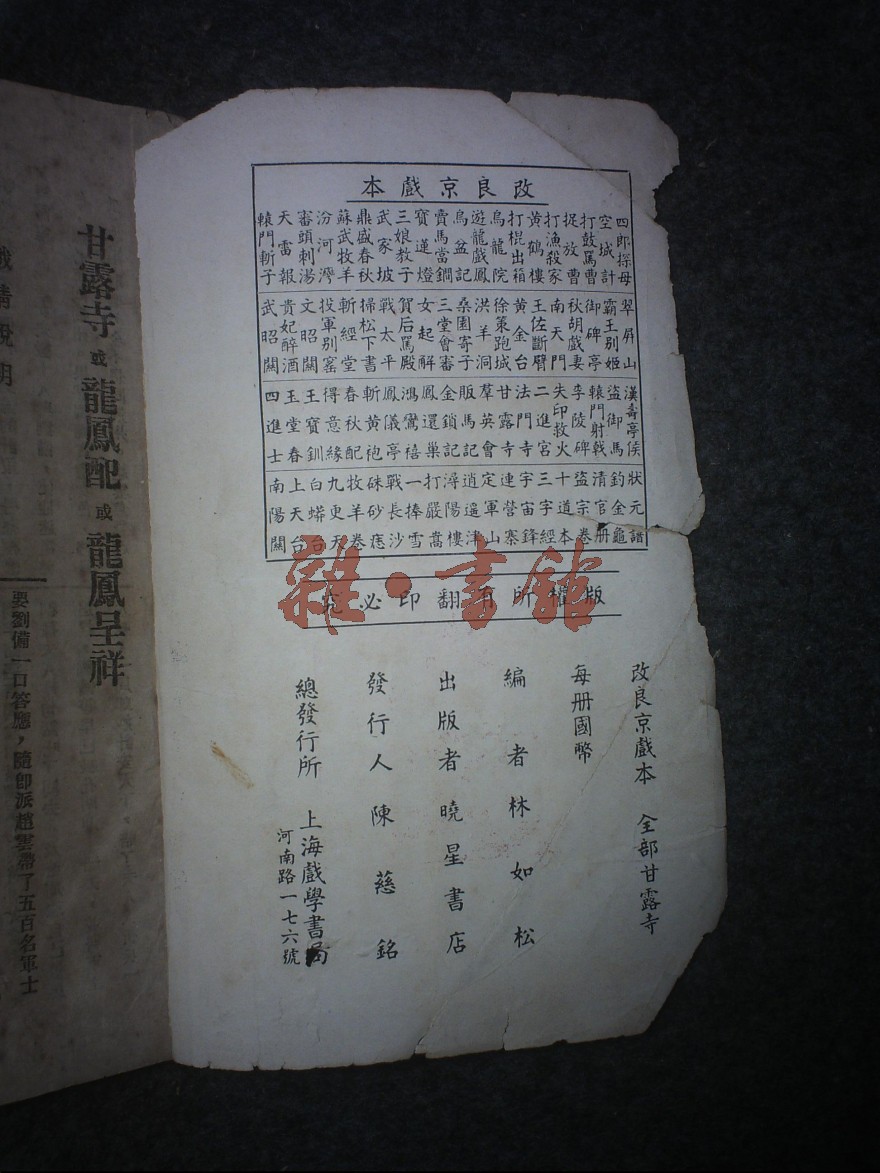 改良京戲本
四郎探母
空城計
打鼓罵曹
捉放曹
打漁殺家
黃鶴樓
打棍出箱
烏龍院
遊龍戲鳳
烏盆記
賣馬當鐧
寶蓮燈
三娘教子
武家坡
鼎盛春秋
蘇武牧羊
汾河灣
審頭刺湯
天雷報
轅門斬子
翠屏山
霸王別姬
御碑亭
秋胡戲妻
南天門
王佐斷臂
黃金台
徐策跑城
洪羊洞
桑園寄子
三堂會審
女起解
賀后罵殿
戰太平
掃松下書
斬經堂
投軍別窰
文昭關
貴妃醉酒
武昭關
漢壽亭侯
盜御馬
轅門射戟
李陵碑
失印救火
二進宮
法門寺
甘露寺
羣英會
販馬記
金鎖記
鳳還巢
鴻鸞禧
鳳儀亭
斬黃袍
春秋配
得意緣
王寶釧
玉堂春
四進士
狀元譜
釣金龜
清官册
盜宗卷
十道本
三字經
宇宙鋒
連營寨
定軍山
逍遙津
潯陽樓
打嚴嵩
一捧雪
戰長沙
硃砂痣
牧羊卷
九更天
白蟒台
上天台
南陽關
版權所有翻印必究
雜·書館
改良京戲本 全部甘露寺
每册國幣
編者林如松
出版者曉星書店
發行人陳慈銘
總發行所 上海戲學書局
河南路一七六號
甘露寺或龍鳳配或龍鳳呈祥
要劉備一口答應，隨卽派趙雲帶了五百名軍士